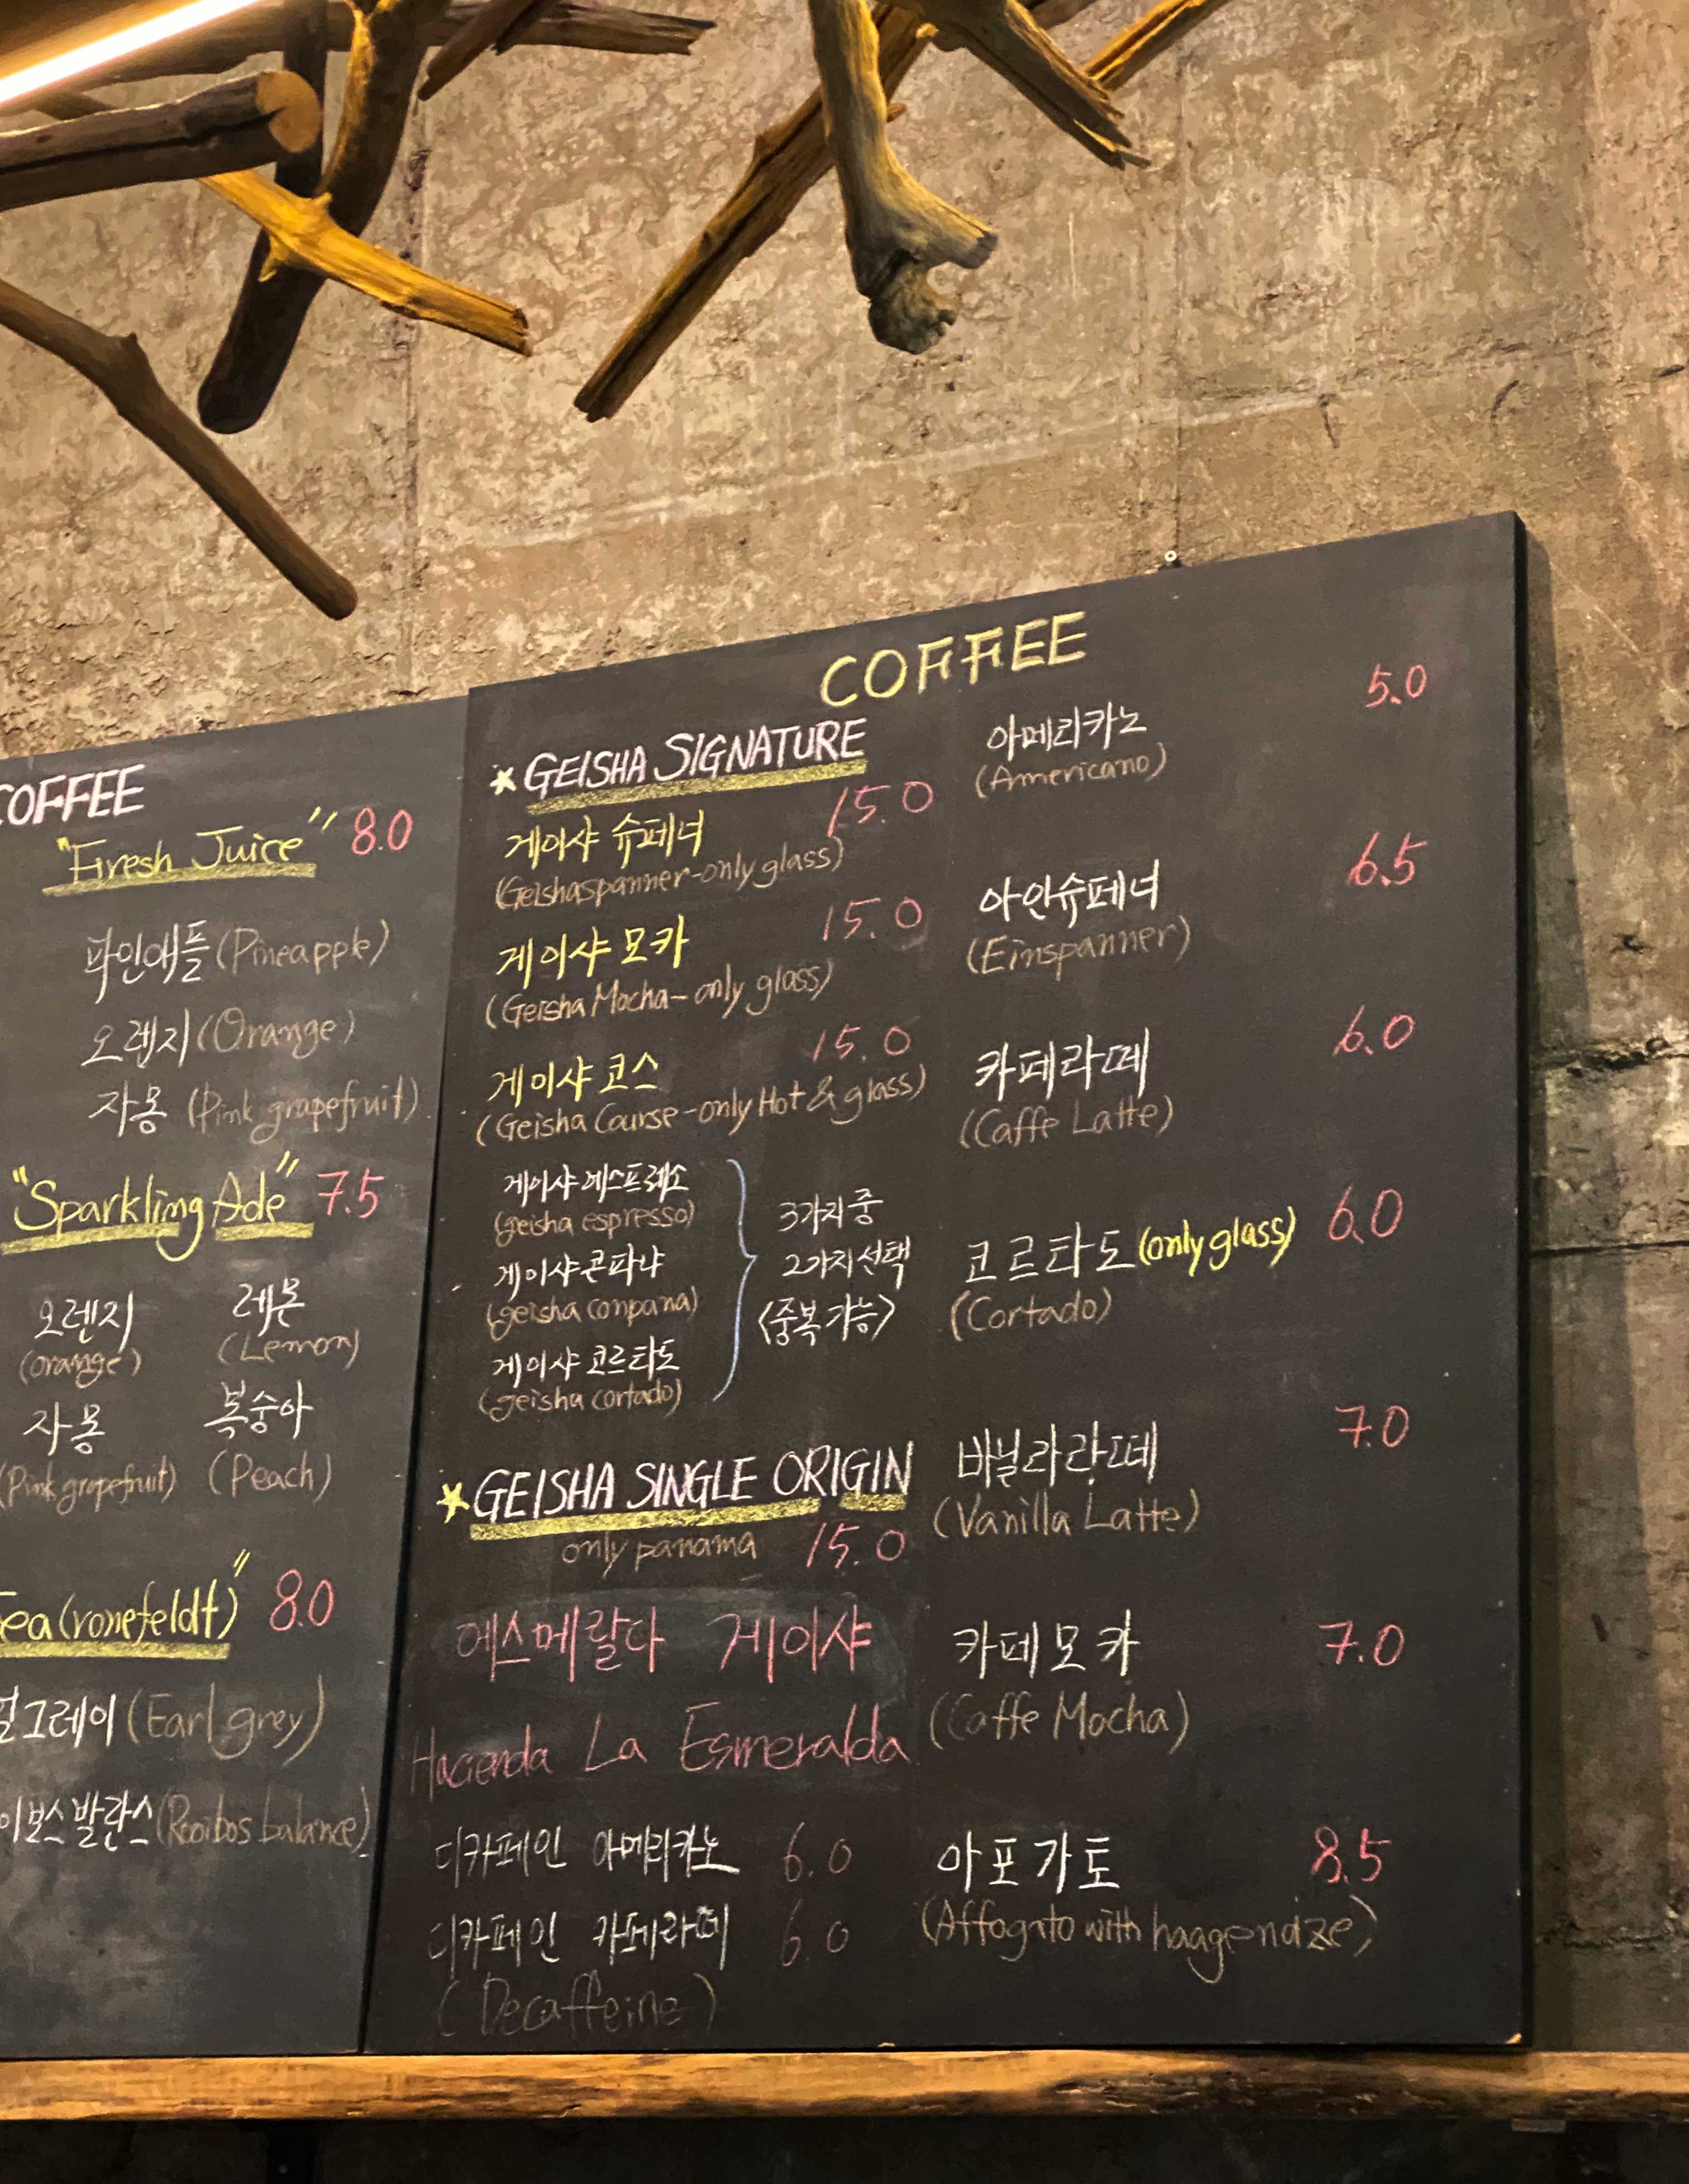 COFFEE
"Fresh Juice" 8.0
파인애플 (Pineapple)
오렌지 (Orange)
자몽 (Pink grapefruit)
"Sparkling Ade" 7.5
오렌지 레몬
(orange) (Lemon)
자몽 복숭아
(Pink grapefruit) (Peach)
Tea (ronefeldt)" 8.0
얼그레이 (Earl grey)
이보스 발란스 (Rooibos balance)
COFFEE
★ GEISHA SIGNATURE
게이샤 슈페너 15.0
(Geishaspanner-only glass)
게이샤 모카 15.0
(Geisha Mocha- only glass)
게이샤 코스 15.0
(Geisha Course-only Hot & glass)
게이샤 에스프레소
(geisha espresso)
게이샤 콘파냐
(geisha conpana)
게이샤 코르타도
(geisha cortado)
3가지 중
2가지 선택
<중복 가능>
★ GEISHA SINGLE ORIGIN
only panama 15.0
에스메랄다 게이샤
Hacienda La Esmeralda
디카페인 아메리카노 6.0
디카페인 카페라떼 6.0
(Decaffeine)
아메리카노 5.0
(Americano)
아인슈페너 6.5
(Einspanner)
카페라떼 6.0
(Caffe Latte)
코르타도 (only glass) 6.0
(Cortado)
바닐라라떼 7.0
(Vanilla Latte)
카페모카 7.0
(Caffe Mocha)
아포가토 8.5
(Affogato with haagendaze)